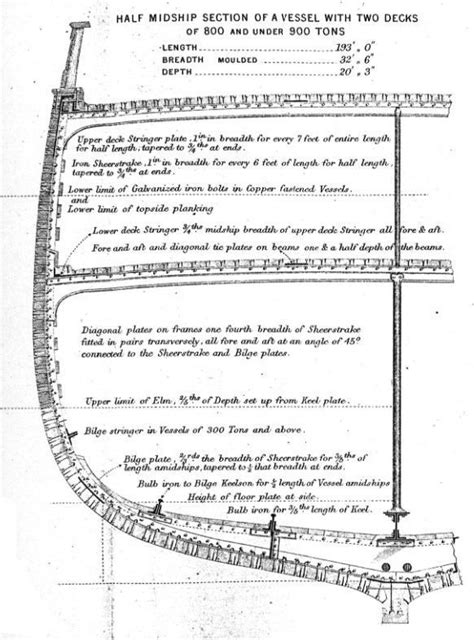 HALF MIDSHIP SECTION OF A VESSEL WITH TWO DECKS
OF 800 AND UNDER 900 TONS
LENGTH 193' „ 0"
BREADTH MOULDED 32' „ 6"
DEPTH 20' „ 3"
Upper deck Stringer plate, 1 in in breadth for every 7 feet of entire length
for half length, tapered to 3/4 ths at ends.
Iron Sheerstrake, 1 in in breadth for every 6 feet of length for half length,
tapered to 3/4 ths at ends.
Lower limit of Galvanized iron bolts in Copper fastened Vessels.
and
Lower limit of topside planking
Lower deck Stringer 3/4 ths midship breadth of upper deck Stringer all fore & aft.
Fore and aft and diagonal tie plates on beams one & a half depth of the beams.
Diagonal plates on frames one fourth breadth of Sheerstrake
fitted in pairs transversely, all fore and aft at an angle of 45°
connected to the Sheerstrake and Bilge plates.
Upper limit of Elm, 2/5 ths of Depth set up from Keel plate.
Bilge stringer in Vessels of 300 Tons and above.
Bilge plate, 2/3 rds the breadth of Sheerstrake for 3/5 ths of
length amidships, tapered to that breadth at ends.
Bulb iron to Bilge Keelson for length of Vessel amidships
Height of floor plate at side.
Bulb iron for 3/5 ths length of Keel.